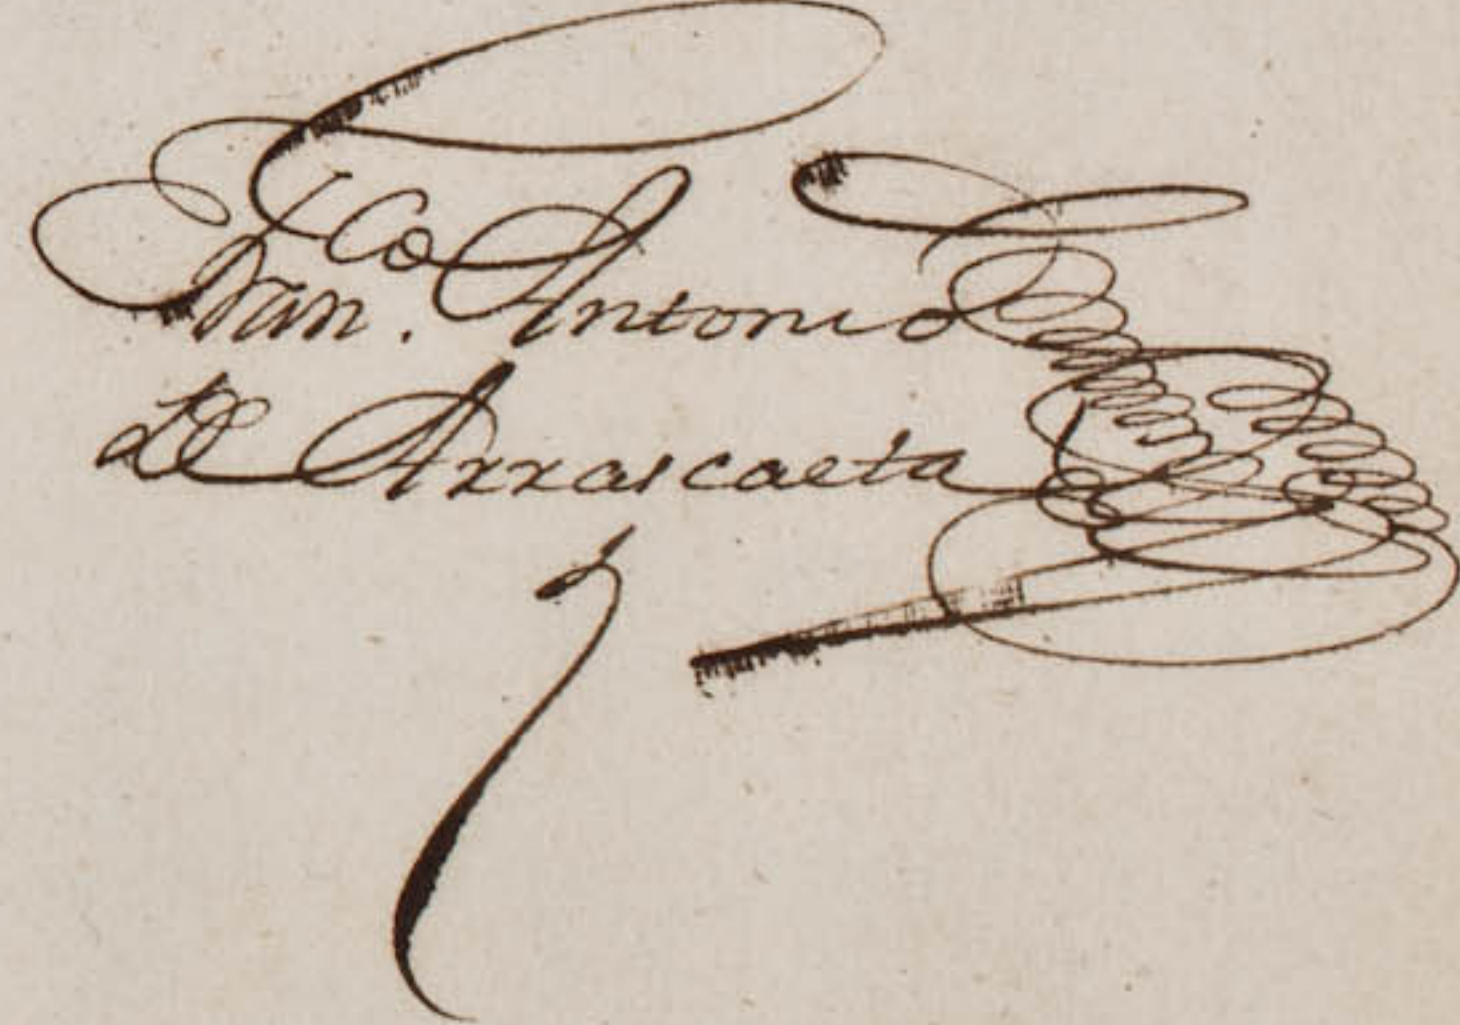 Fran.co Antonio
de Arrascaeta